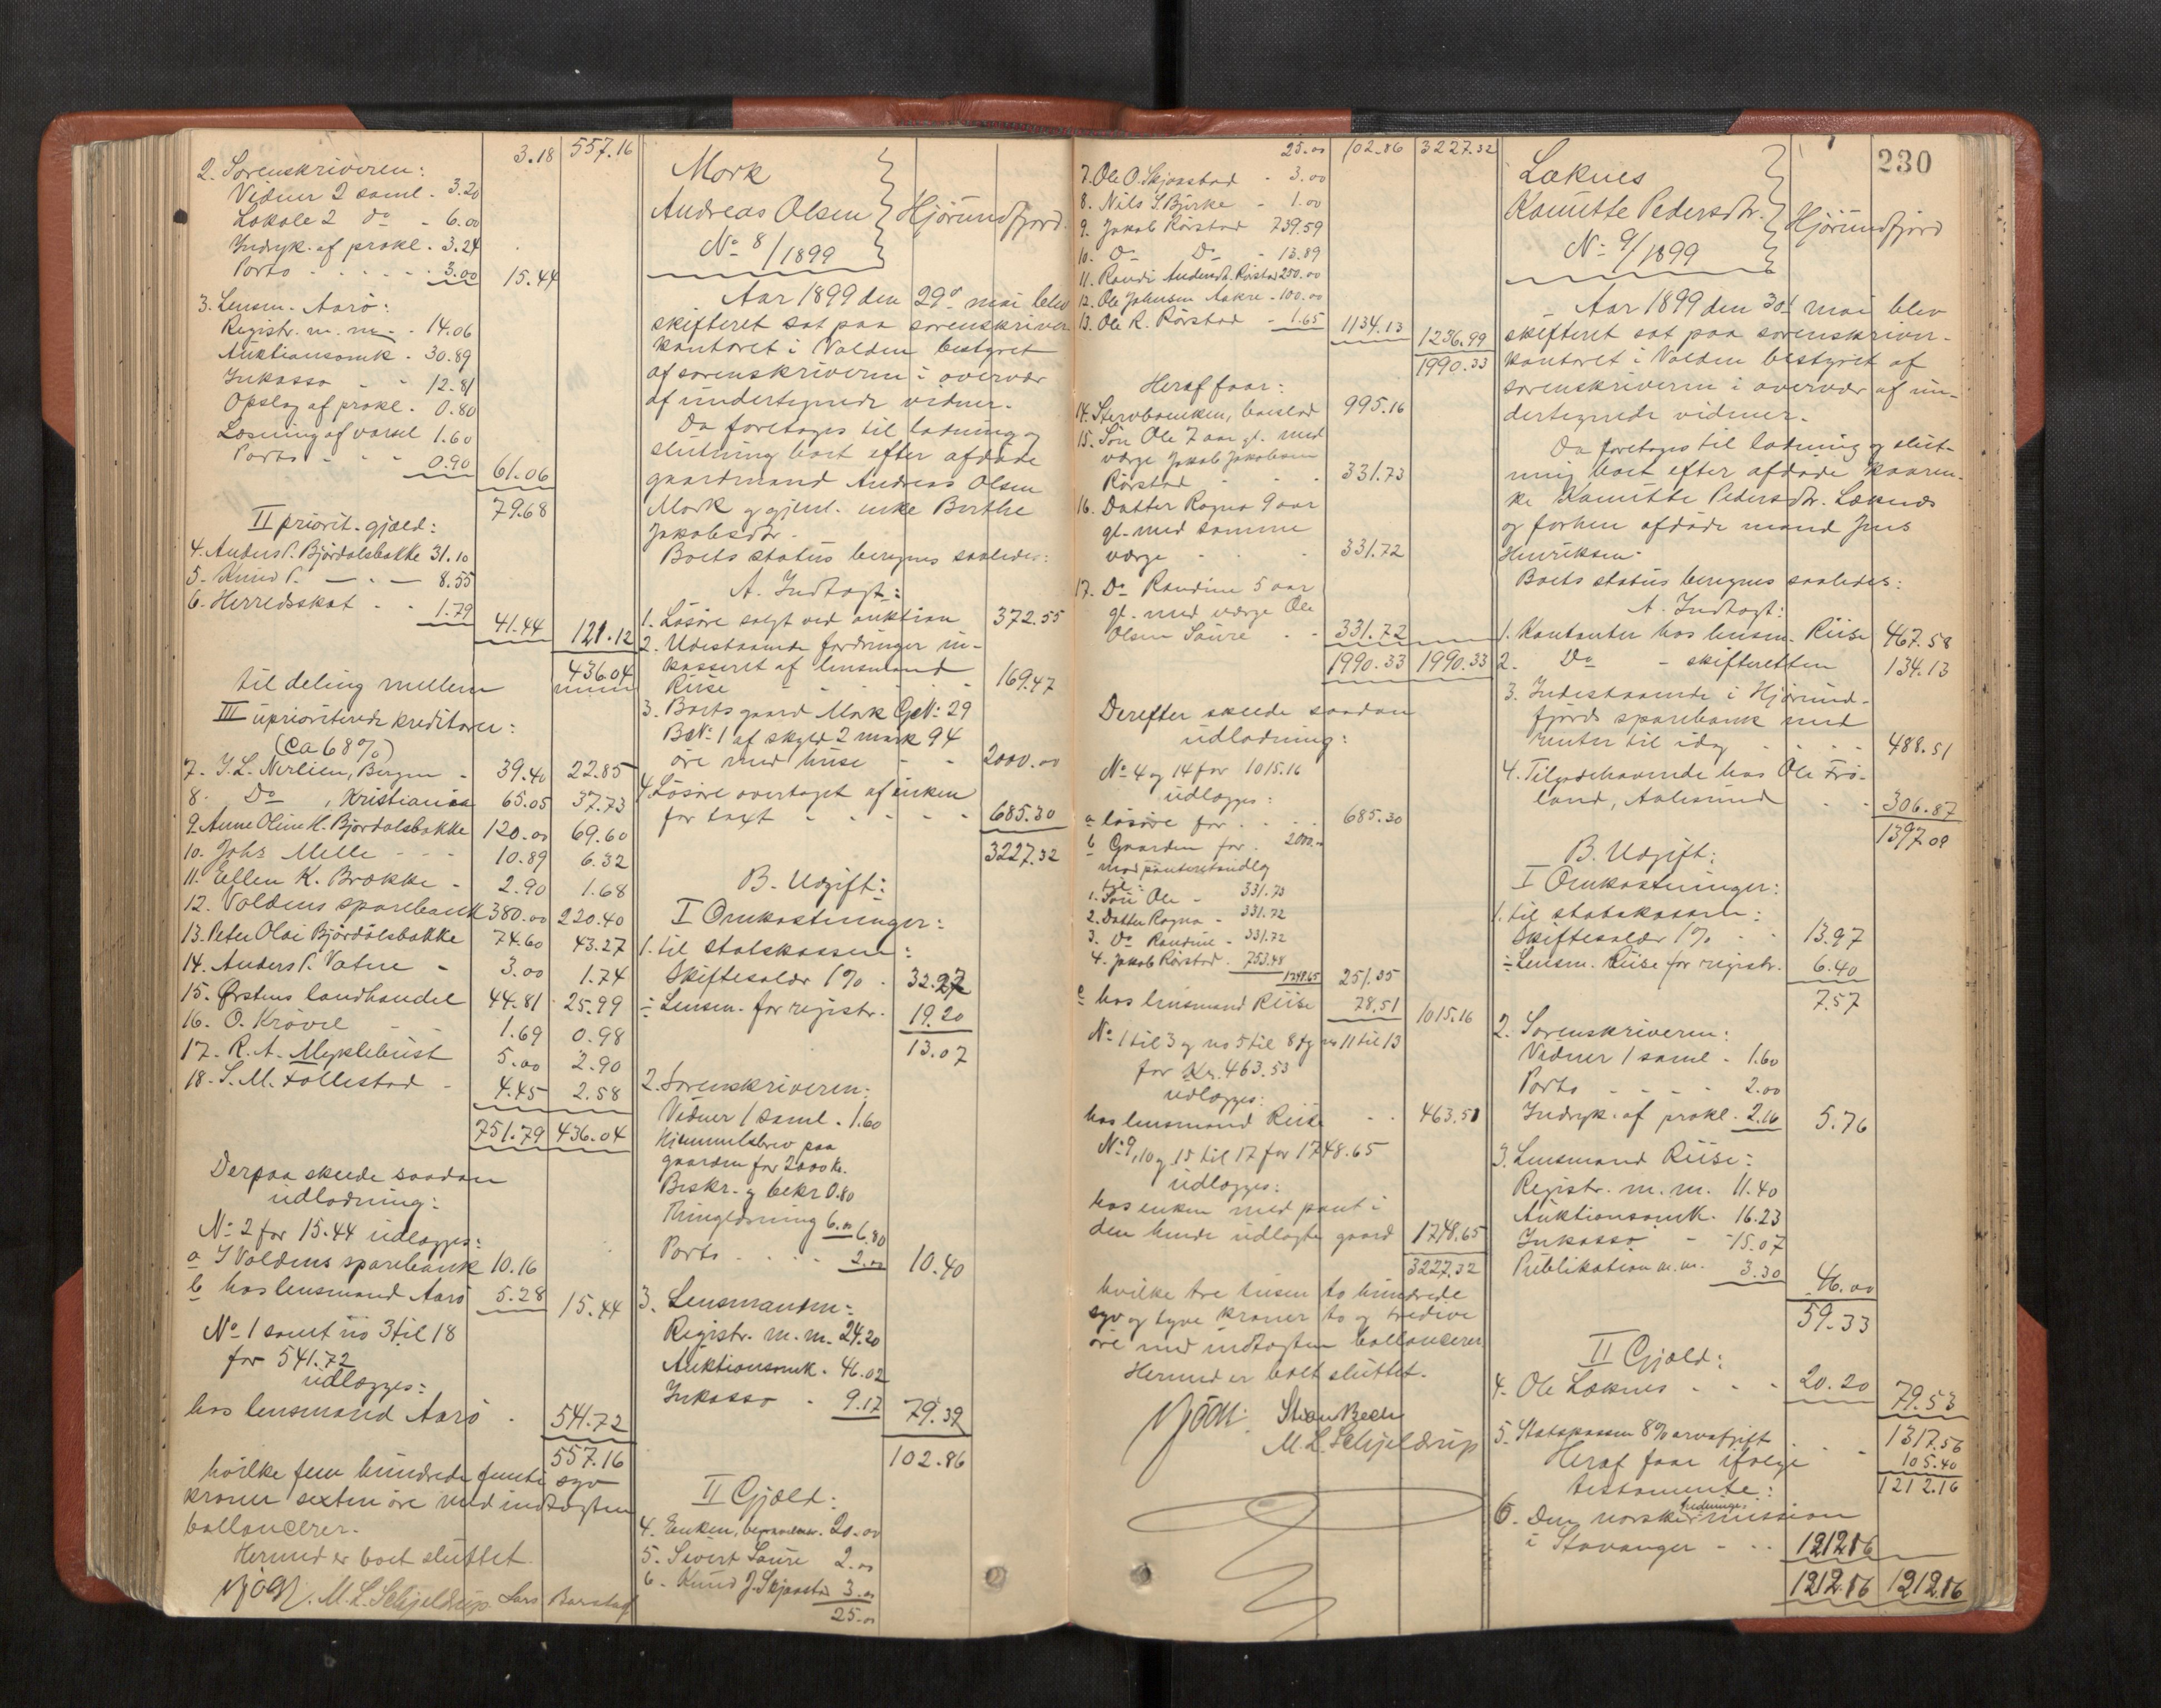 3.18 557.16
2. Sorenskriveren:
Vidner 2 saml. 3.20
Lokale 2 do - 6.00
Indryk. af prokl. 3.24
Porto - - - 3.00 15.44
3. Lensm. Aarö:
Registr. m. m. - 14.06
Auktionsomk. 30.89
Inkasso - - 12.81
Opslag af prokl. 0.80
Læsning af varsel 1.60
Porto - - - 0.90 61.06
79.68
II priorit. gjæld:
4. Anders P. Bjørdalsbakke 31.10
5. Knud P. — " — 8.55
6. Herredsskat - - 1.79 41.44 121.12
436.04
til deling mellem
III uprioriterede kreditorer:
(ca 68%)
7. J. L. Nerlien, Bergen - 39.40 22.85
8. Do , Kristiania 65.05 37.73
9. Anne Oline K. Bjørdalsbakke 120.00 69.60
10. Johs Melle - - - 10.89 6.32
11. Ellen K. Brække - 2.90 1.68
12. Voldens sparebank 380.00 220.40
13. Peter Olai Bjørdalsbakke 74.60 43.27
14. Anders P. Vatne - 3.00 1.74
15. Ørstens landhandel 44.81 25.99
16. O. Krøvel - - 1.69 0.98
17. R. A. Myklebust 5.00 2.90
18. S. M. Follestad - 4.45 2.58
751.79 436.04
Derpaa skeede saadan
udlodning:
No 2 for 15.44 udlægges:
a I Voldens sparebank 10.16
b hos lensmand Aarö 5.28 15.44
No 1 samt no 3 til 18
for 541.72
udlægges:
hos lensmand Aarö - 541.72
557.16
hvilke fem hundrede femti syv
kroner sexten öre med indtægten
ballancerer.
Hermed er boet sluttet.
M. L. Schjeldrup. Lars Barstad
Mork
Andreas Olsen } Hjörundfjord.
No 8/1899
Aar 1899 den 29de mai blev
skifteret sat paa sorenskriver
kontoret i Volden bestyret
af sorenskriveren i overvær
af undertegnede vidner.
Da foretoges til lodning og
slutning boet efter afdöde
gaardmand Andreas Olsen
Mork og gjenl. enke Berthe
Jakobsdtr.
Boets status beregnes saaledes:
A. Indtægt:
1. Lösöre solgt ved auktion 372.55
2. Udestaaende fordringer in-
kasseret af lensmand
Riise - - - - - 169.47
3. Boets gaard Mork GNo 29
BNo 1 af skyld 2 mark 94
öre med huse - - 2000.00
4. Lösöre overtaget af enken
for taxt - - - - - 685.30
3227.32
B. Udgift:
I Omkostninger:
1. til statskassen:
Skiftesalær 1% . 32.27
÷ Lensm. for registr. 19.20
13.07
2. Sorenskriveren:
Vidner 1 saml. - 1.60
Hjemmelsbrev paa
gaarden for 2000 kr.
Beskr. og bekr 0.80
Thinglæsning 6.00 6.80
Porto - - - - 2.00 10.40
3. Lensmanden:
Registr. m. m. 24.20
Auktionsomk. 46.02
Inkasso - 9.17 79.39
102.86
II Gjæld:
4. Enken, begravelsesomk. 20.00
5. Sivert Saure 2.00
6. Knud J. Skjaastad 3.00
25.00
25.00 102.86 3227.32
7. Ole O. Skjaastad - 3.00
8. Nils S. Bjørke - 1.00
9. Jakob Rörstad 739.59
10. Do Do - 13.89
11. Randi Andersdt. Rörstad 250.00
12. Ole Johnsen Aakre - 100.00
13. Ole R. Rörstad - 1.65 1134.13 1236.99
1990.33
Heraf faar:
14. Stervboenken, boeslod 995.16
15. Sön Ole 7 aar gl. med
værge Jakob Jakobsen
Rörstad - - - 331.73
16. Datter Ragna 9 aar
gl. med samme
værge - - - 331.72
17. Do Randine 5 aar
gl. med værge Ole
Olsen Saure - - 331.72
1990.33 1990.33
Derefter skeede saadan
udlodning:
No 4 og 14 for 1015.16
udlægges:
a lösöre for - - - 685.30
b Gaarden for . 2000.00
mod panteretsudlæg
til:
1. Sön Ole - 331.73
2. Datter Ragna - 331.72
3. Do Randine - 331.72
4. Jakob Rörstad . 753.48
1748.65 251.35
c hos lensmand Riise 78.51 1015.16
No 1 til 3 og no 5 til 8 og no 11 til 13
for Kr. 463.53
udlægges:
hos lensmand Riise - - 463.51
No 9, 10 og 15 til 17 for 1748.65
udlægges:
hos enken med pant i
den hende udlagte gaard 1748.65
3227.32
hvilke tre tusen to hundrede
syv og tyve kroner to og tredive
öre med indtægten ballancerer.
Hermed er boet sluttet.
Stian Bech
M. L. Schjeldrup
230
Læknes
Kanutte Pedersdtr. } Hjörundfjord
No 9/1899
Aar 1899 den 30t mai blev
skifteret sat paa sorenskriver-
kontoret i Volden bestyret af
sorenskriveren i overvær af un-
dertegnede vidner.
Da foretoges til lodning og slut-
ning boet efter afdöde kaaren-
ke Kanutte Pedersdtr. Læknes
og forhen afdöde mand Jens
Henriksen.
Boets status beregnes saaledes:
A. Indtægt:
1. Kontanter hos lensm. Riise 467.58
2. Do - skifteretten 134.13
3. Indestaaende i Hjörund-
fjords sparebank med
renter til idag - - - - 488.51
4. Tilgodehavende hos Ole Frö-
land, Aalesund - - 306.87
1397.09
B. Udgift:
I Omkostninger:
1. til statskassen:
Skiftesalær 1% - - 13.97
÷ Lensm. Riise for registr. 6.40
7.57
2. Sorenskriveren:
Vidner 1 saml. - 1.60
Porto - - - - 2.00
Indryk. af prokl. 2.16 5.76
3. Lensmand Riise:
Registr. m. m. 11.40
Auktionsomk. 16.23
Inkasso - 15.07
Publikation m. m. 3.30 46.00
59.33
II Gjæld:
4. Ole Læknes - - - 20.20 79.53
1317.56
5. Statskassen 8% arvafgift - - 105.40
1212.16
Heraf faar ifölge
testamente:
6. Den norske hedninge-mission
i Stavanger - - - 1212.16
1212.16 1212.16